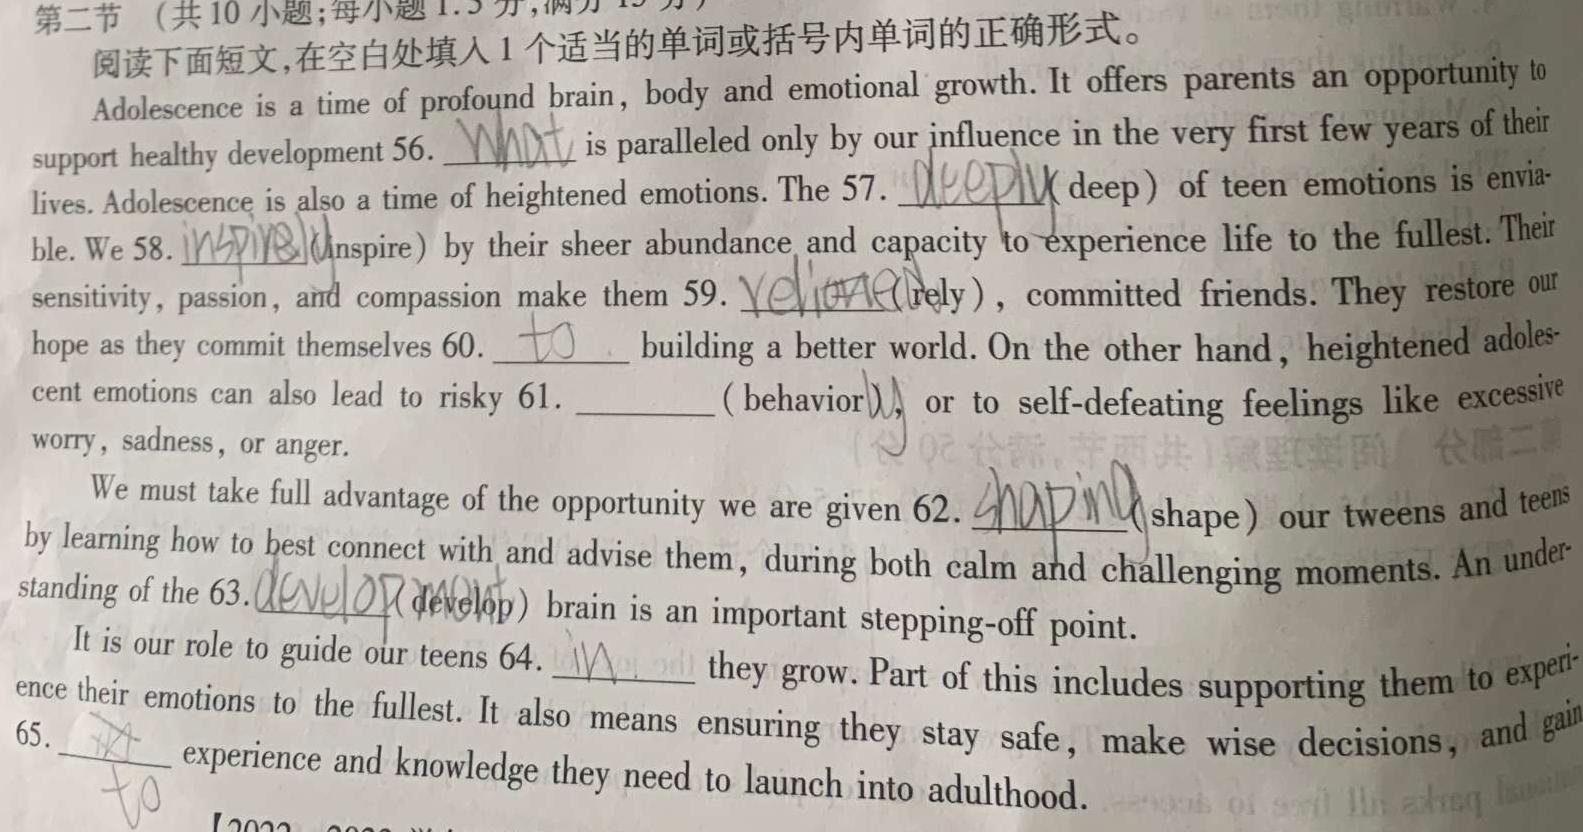 第二节 (共 10 小题;每小题 1.5 分,满分 15 分)
阅读下面短文,在空白处填入 1 个适当的单词或括号内单词的正确形式。
Adolescence is a time of profound brain, body and emotional growth. It offers parents an opportunity to
support healthy development 56. What is paralleled only by our influence in the very first few years of their
lives. Adolescence is also a time of heightened emotions. The 57. deeply (deep) of teen emotions is envia-
ble. We 58. inspirely (inspire) by their sheer abundance and capacity to experience life to the fullest. Their
sensitivity, passion, and compassion make them 59. (rely), committed friends. They restore our
hope as they commit themselves 60. to building a better world. On the other hand, heightened adoles-
cent emotions can also lead to risky 61. ______ (behavior) ly, or to self-defeating feelings like excessive
worry, sadness, or anger.
We must take full advantage of the opportunity we are given 62. shaping (shape) our tweens and teens
by learning how to best connect with and advise them, during both calm and challenging moments. An under-
standing of the 63. development (develop) brain is an important stepping-off point.
It is our role to guide our teens 64. in they grow. Part of this includes supporting them to experi-
ence their emotions to the fullest. It also means ensuring they stay safe, make wise decisions, and gain
65. experience and knowledge they need to launch into adulthood.
to